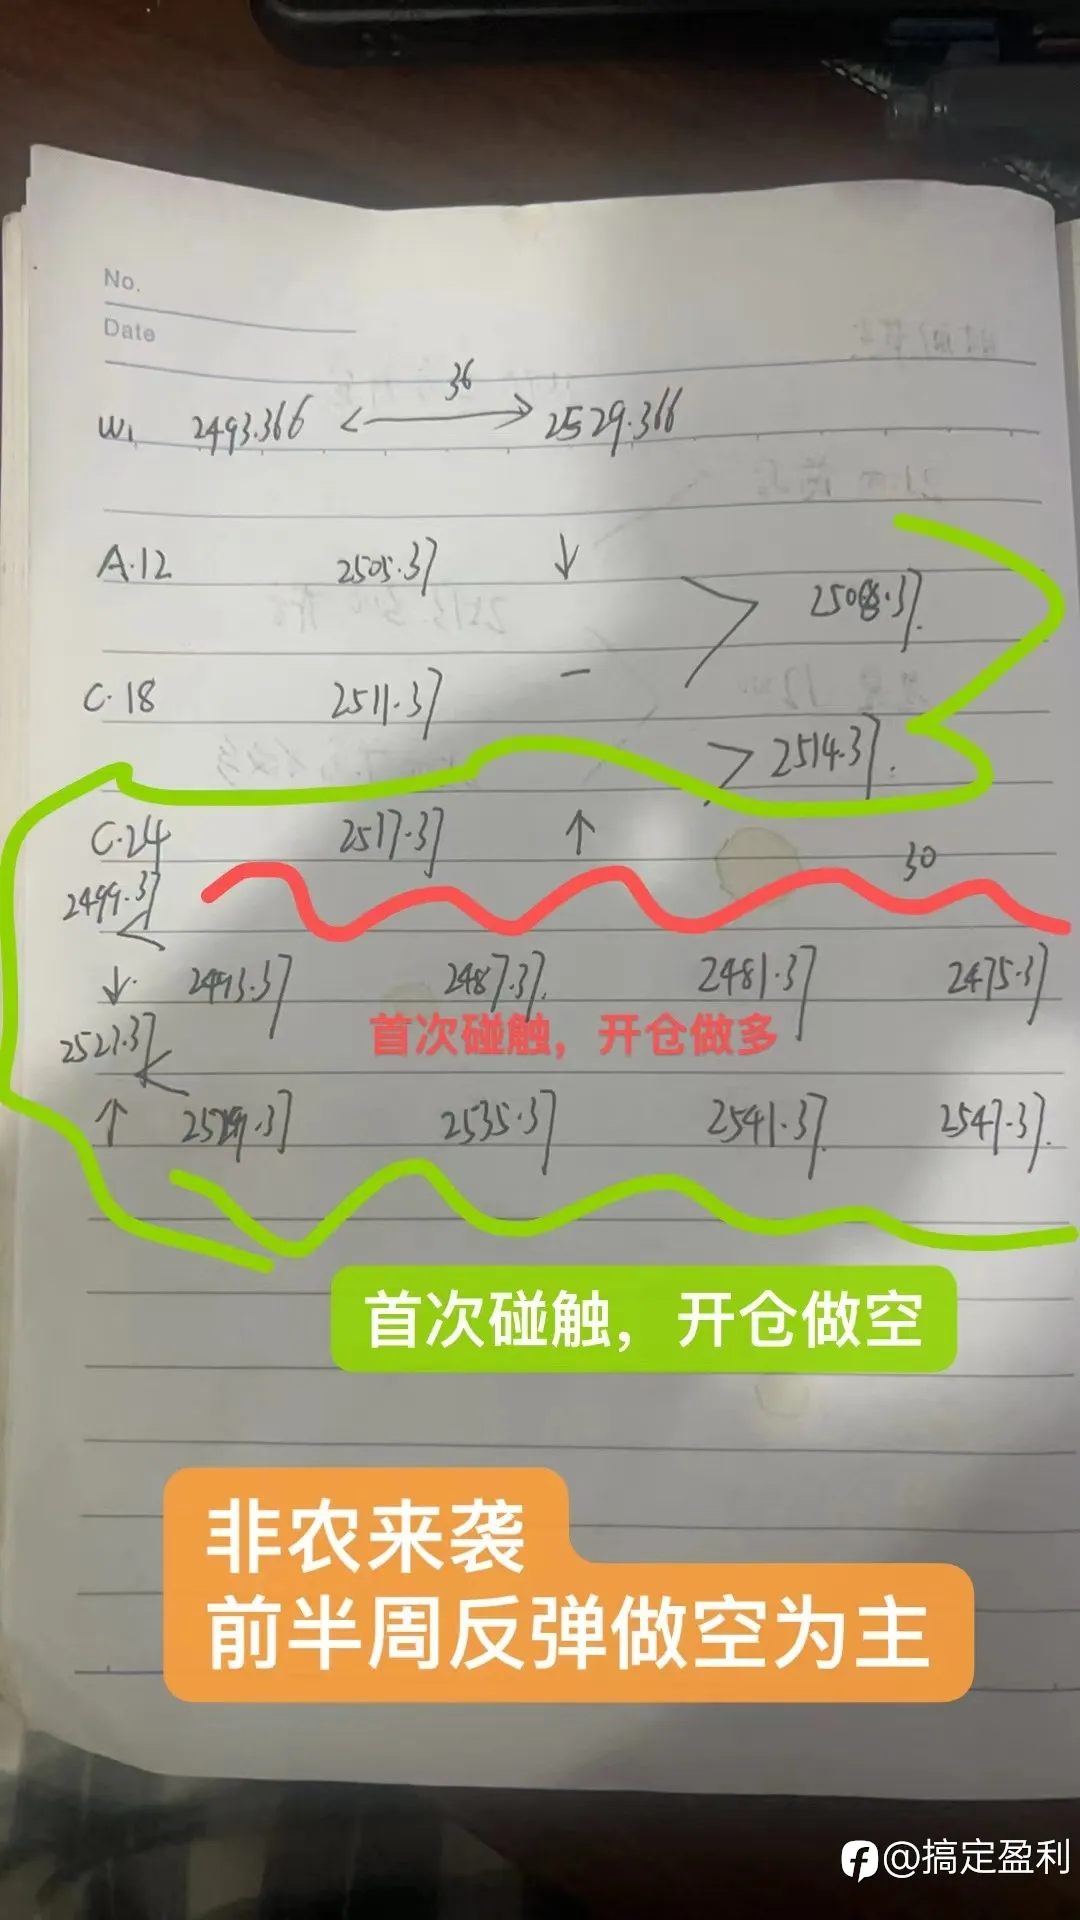 No.
Date
36
W1 2493.366 2529.366
A.12 2505.37 ↓
2508.37
C.18 2511.37 —
2514.37
C.24 2517.37 ↑
30
2499.37
↓ 2493.37 2487.37 2481.37 2475.37
首次碰触，开仓做多
2523.37
↑ 2529.37 2535.37 2541.37 2547.37
首次碰触，开仓做空
非农来袭
前半周反弹做空为主
@搞定盈利